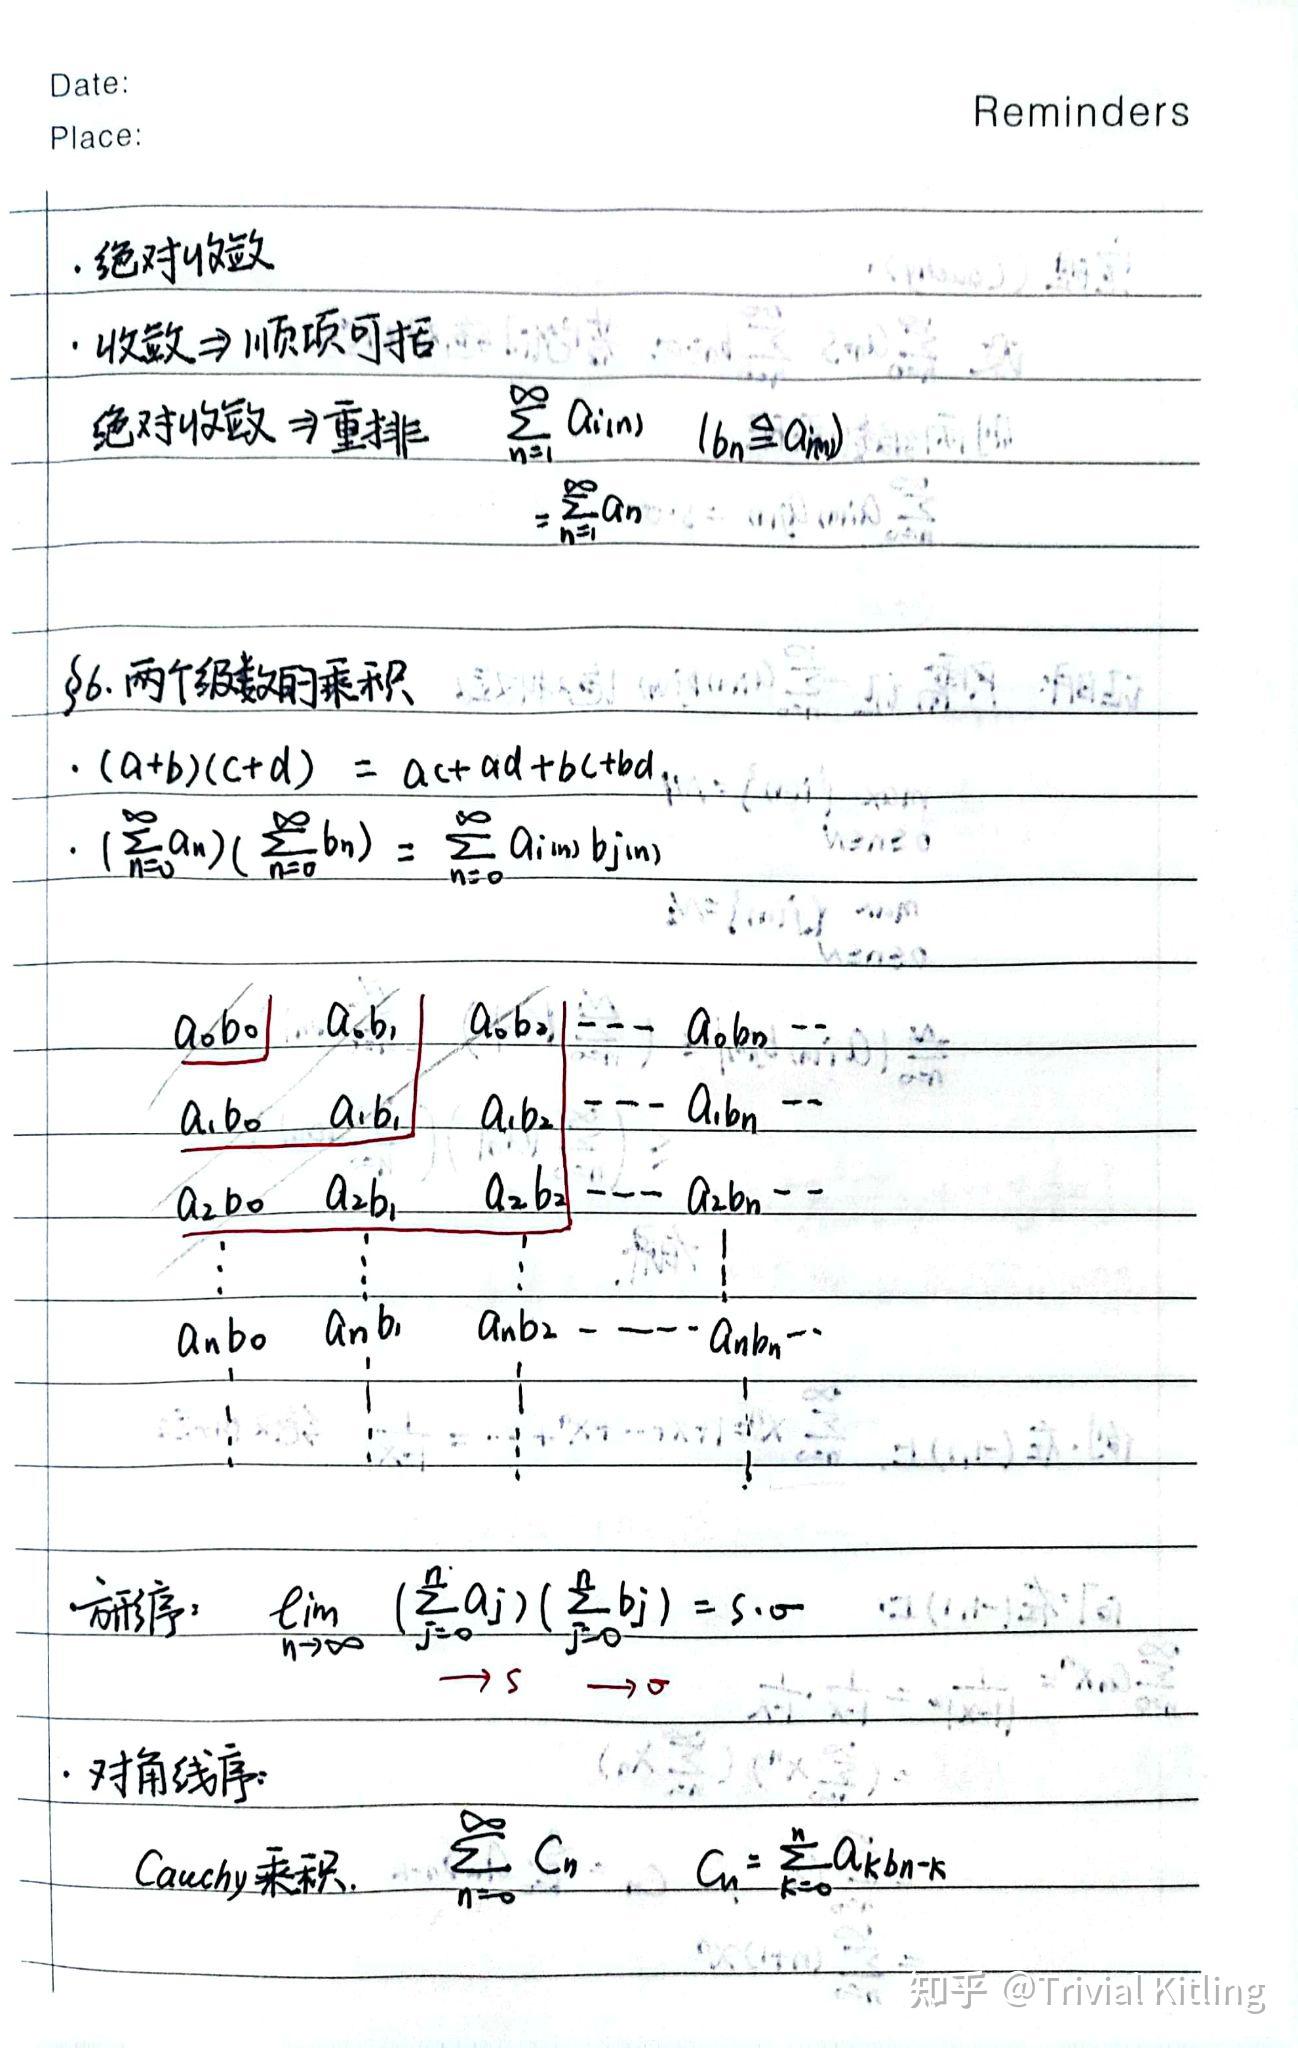 Date:
Place:
Reminders
· 绝对收敛
· 收敛 ⇒ 顺项可括
绝对收敛 ⇒ 重排 ∑_{n=1}^{∞} a_{i(n)} (b_n ≜ a_{i(n)})
= ∑_{n=1}^{∞} a_n
§6. 两个级数的乘积
· (a+b)(c+d) = ac+ad+bc+bd
· (∑_{n=0}^{∞} a_n)(∑_{n=0}^{∞} b_n) = ∑_{n=0}^{∞} a_{i(n)} b_{j(n)}
a₀b₀ a₀b₁ a₀b₂ --- a₀bₙ --
a₁b₀ a₁b₁ a₁b₂ --- a₁bₙ --
a₂b₀ a₂b₁ a₂b₂ --- a₂bₙ --
aₙb₀ aₙb₁ aₙb₂ ----- aₙbₙ --
· 方形序: lim_{n→∞} (∑_{j=0}^{n} a_j)(∑_{j=0}^{n} b_j) = s·σ
→ s → σ
· 对角线序:
Cauchy 乘积. ∑_{n=0}^{∞} C_n C_n = ∑_{k=0}^{n} a_k b_{n-k}
知乎 @Trivial Kitling